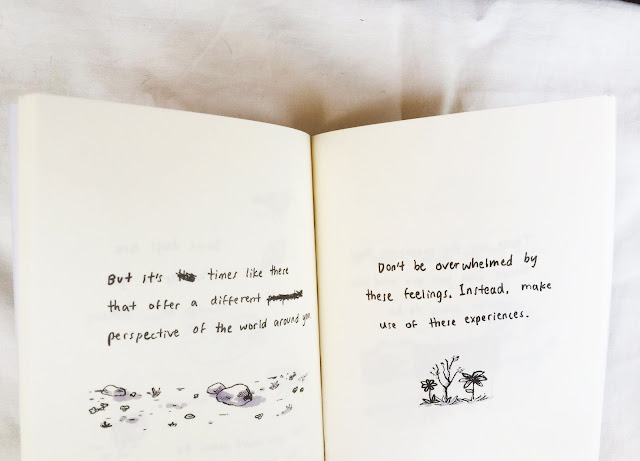 But it's times like these
that offer a different
perspective of the world around you.
Don't be overwhelmed by
these feelings. Instead, make
use of these experiences.